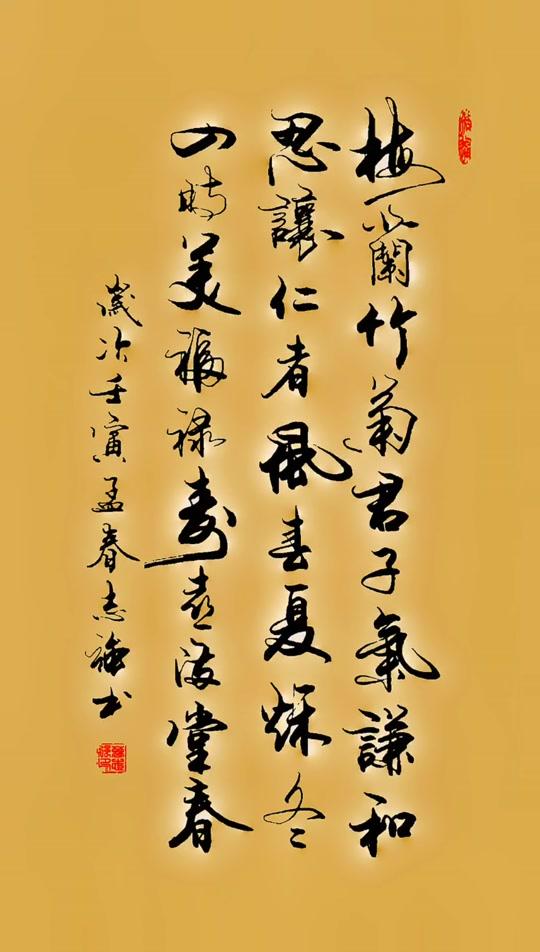 梅蘭竹菊君子氣謙和
忍讓仁者風春夏秌冬
四時美福禄壽喜滿堂春
歲次壬寅孟春志強书